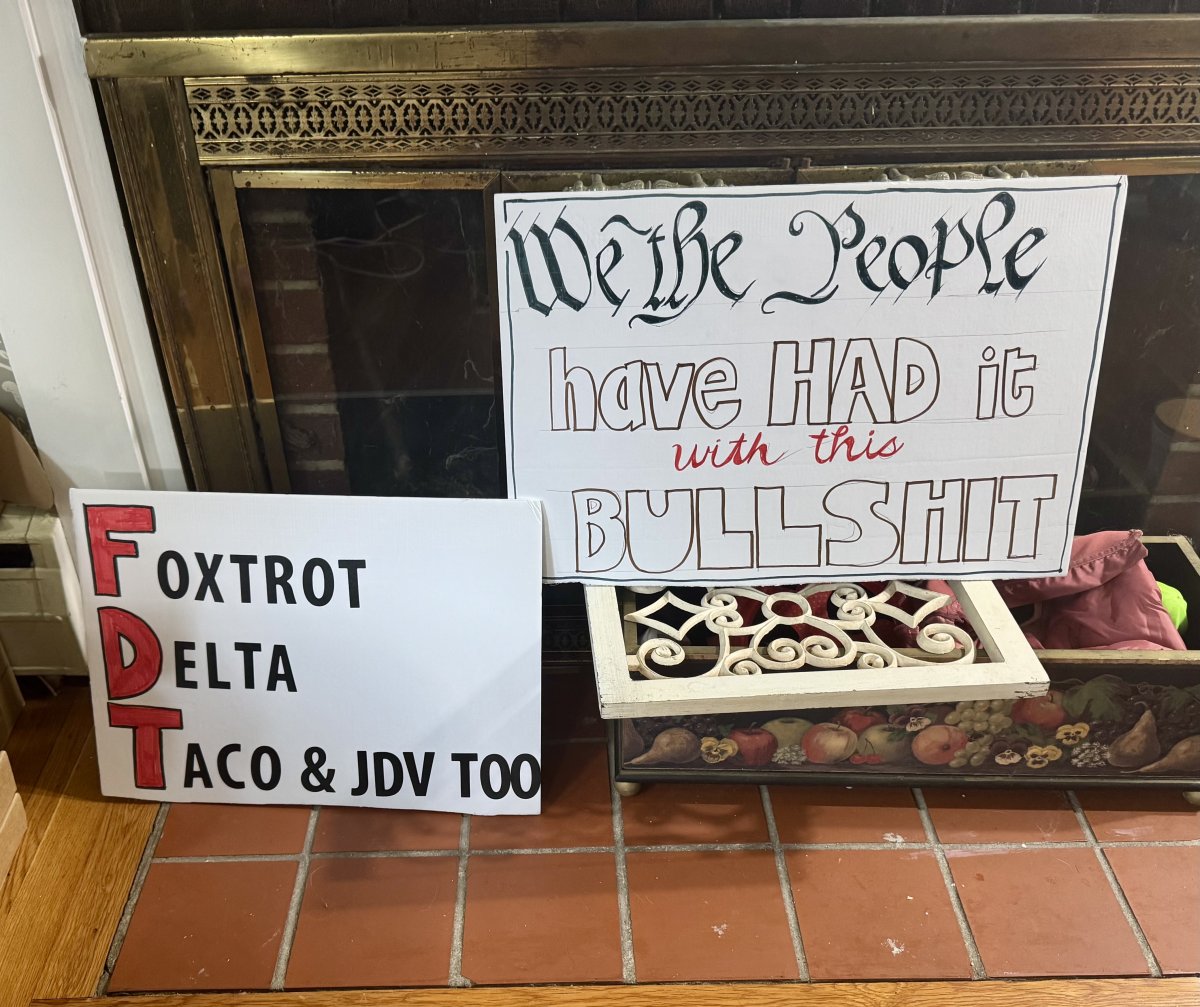 We the People
have HAD it
with this
BULLSHIT
FOXTROT
DELTA
TACO & JDV TOO